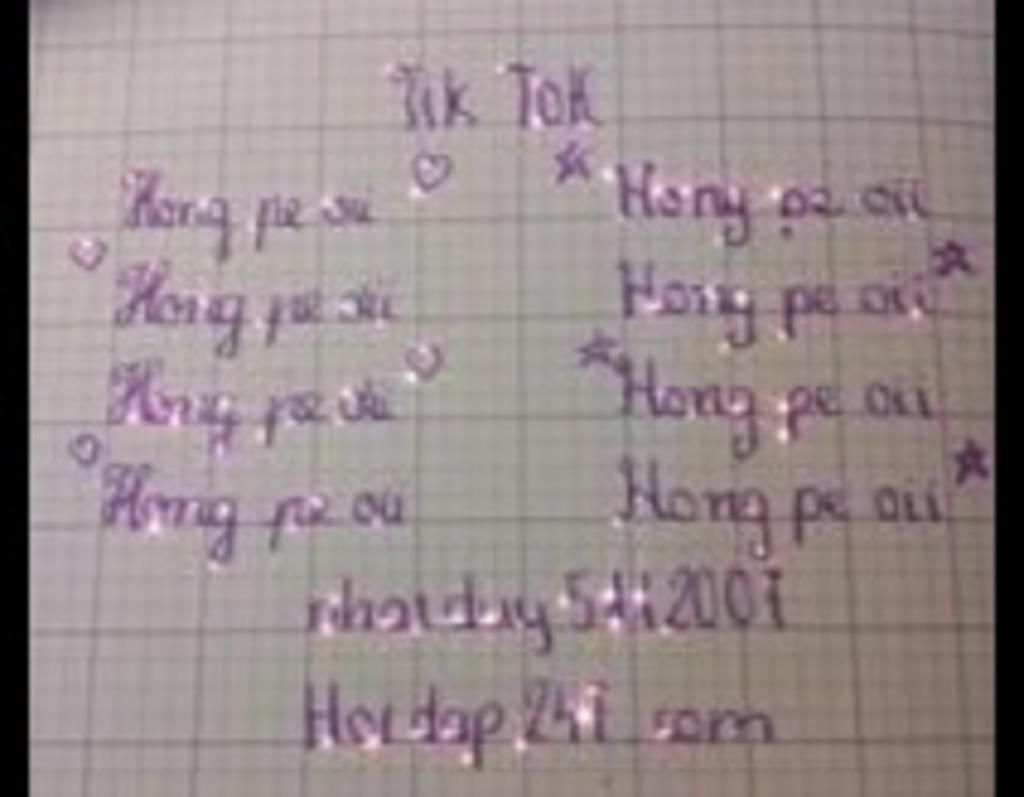 Tik Tok
Hong pe oii Hong pe oii
Hong pe oii Hong pe oii
Hong pe oii Hong pe oii
Hong pe oii Hong pe oii
Hoidap247 com